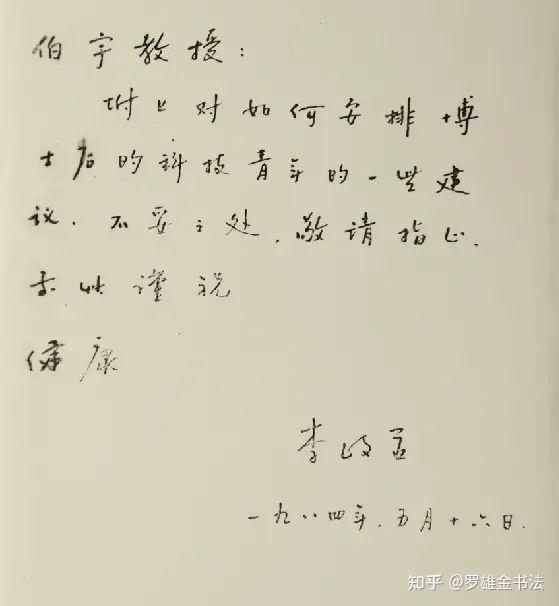 伯宇教授：
附上对如何安排博
士后的科技青年的一些建
议．不妥之处，敬请指正．
专此谨祝
健康
李政道
一九八四年．五月十六日．
知乎 @罗雄金书法